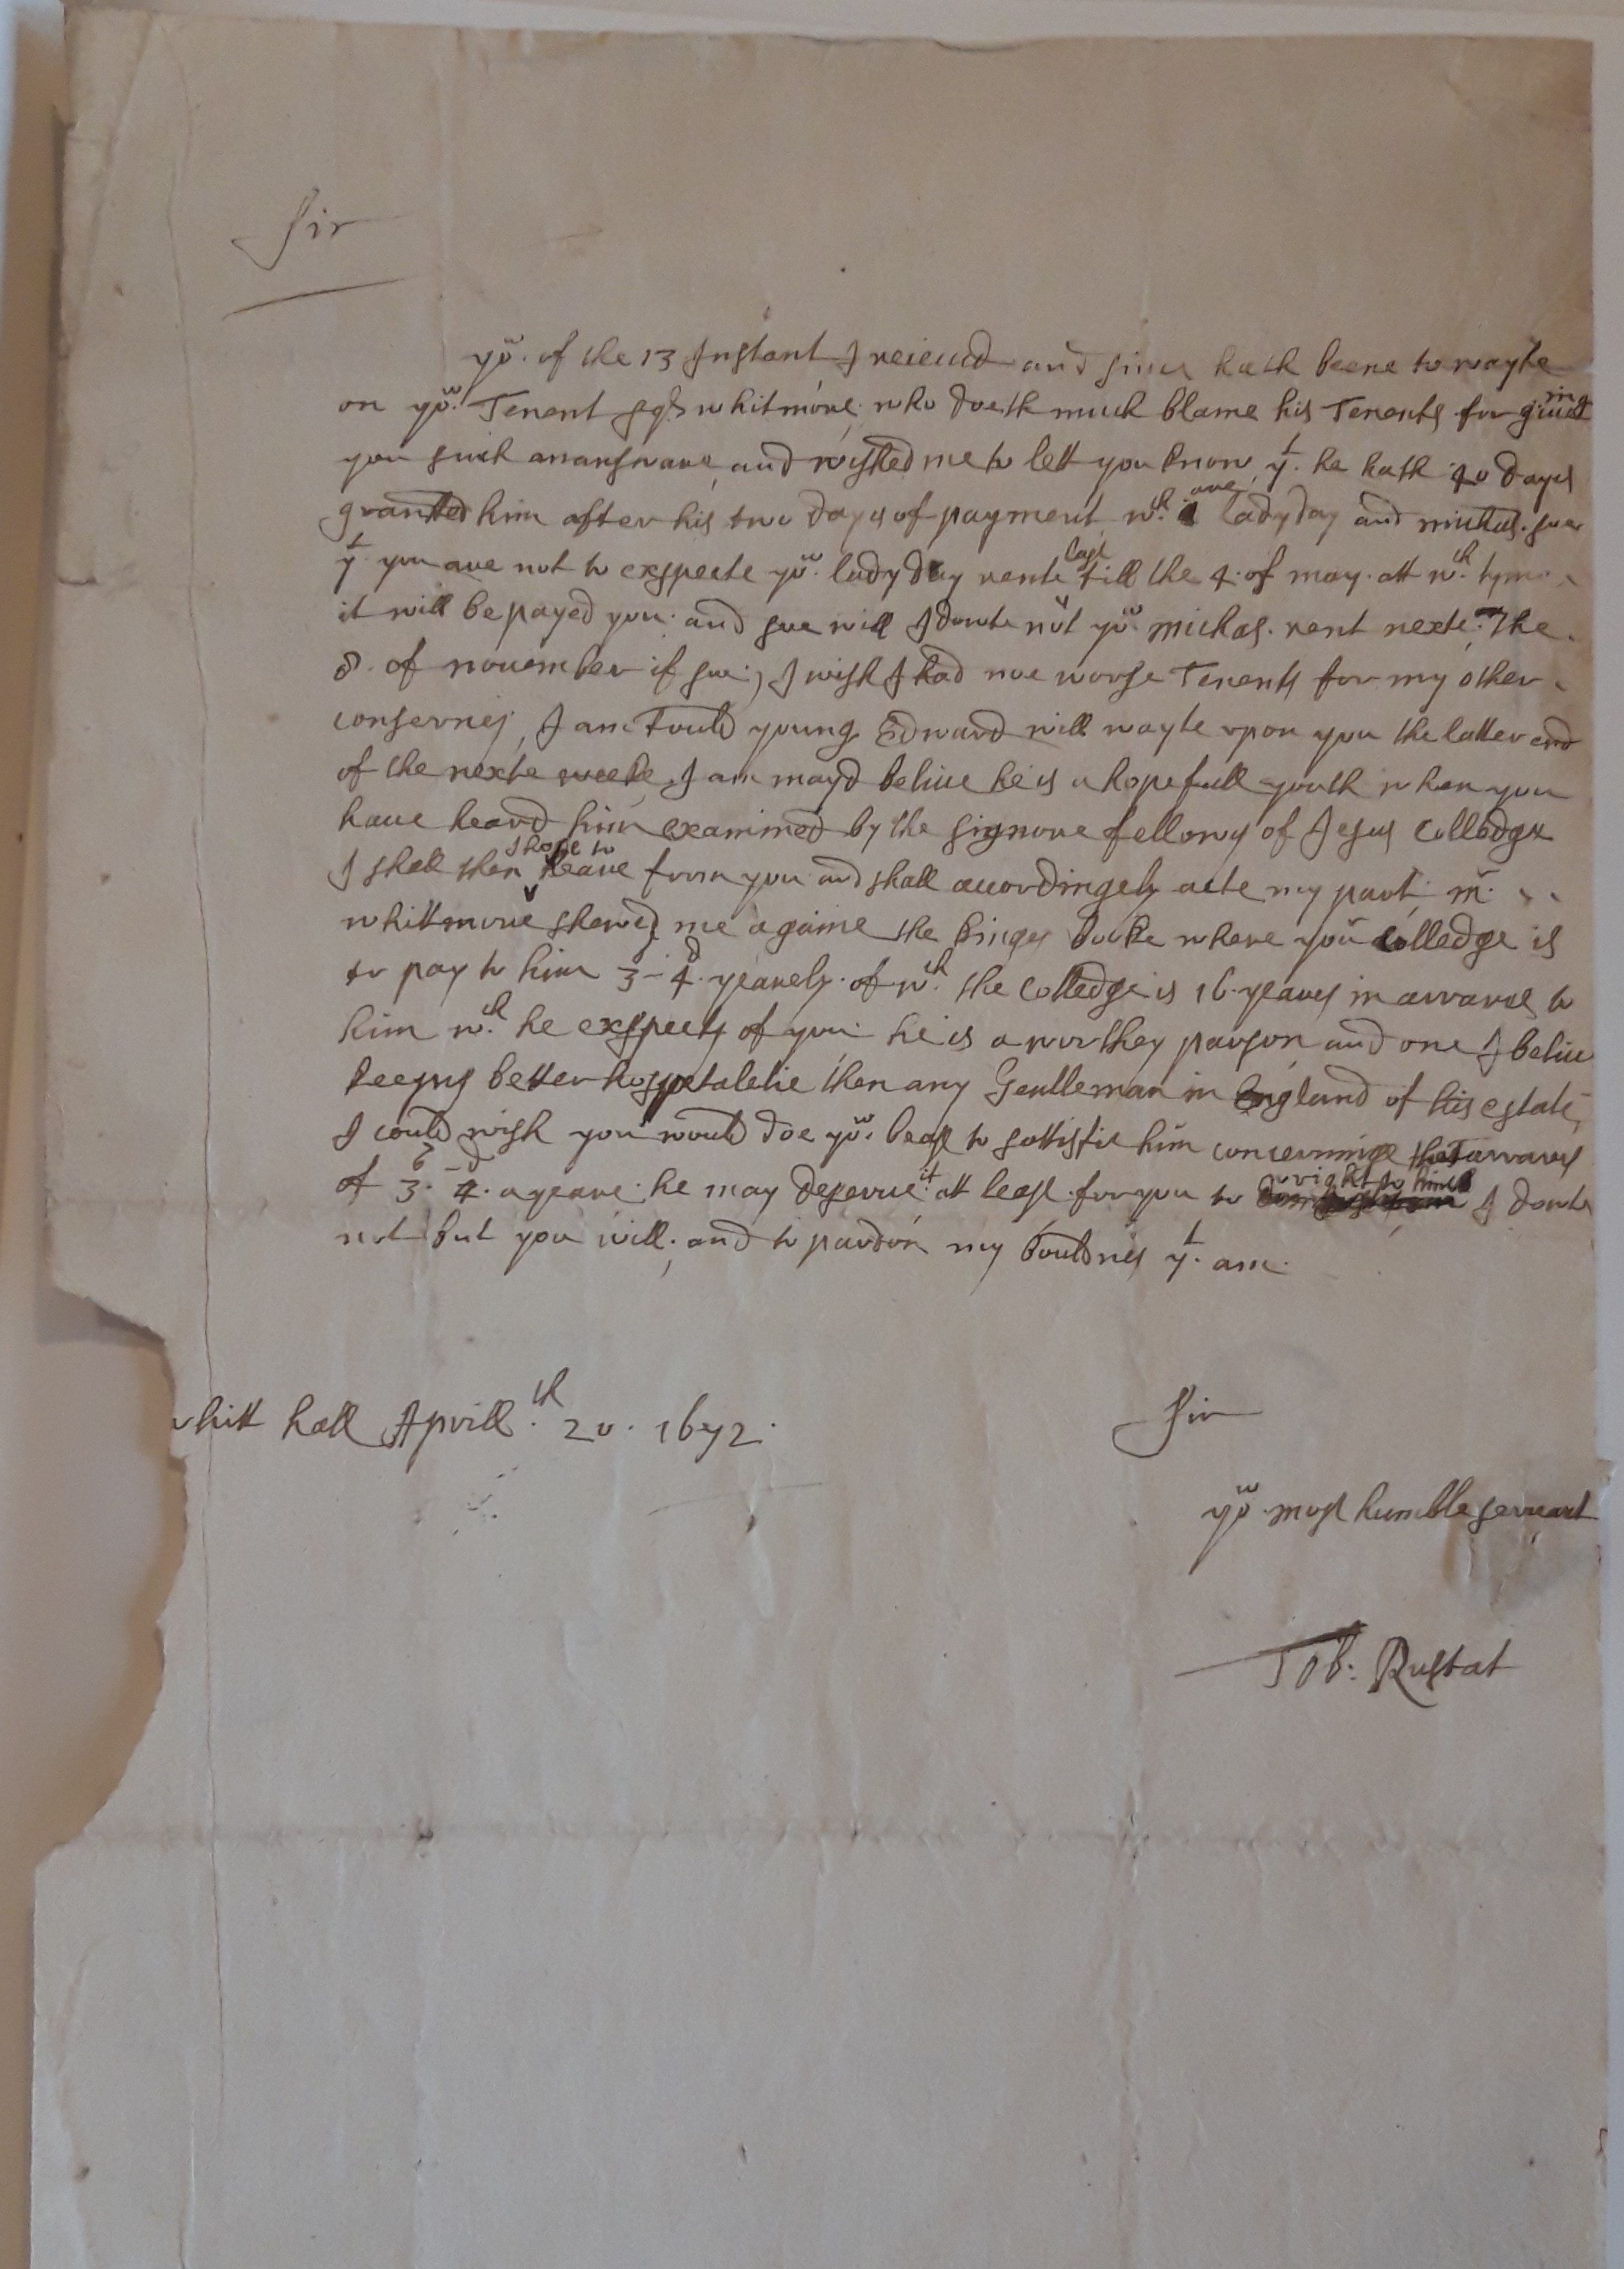 Sir
yor. of the 13 Instant I reieiud and sinse hath beene to wayte
on yor. Tenent Esqr whitmore. who doeth much blame his Tenents for giueing
you such anansware, and wished me to lett you know yt. he hath 40 days
granted him after his two days of payment wch. are ladyday and michas. soe
yt you are not to exspecte yor. ladyday rente last till the 4. of may. att wch. tyme
it will be payed you. and soe will I doute not yor michas. rent nexte. The
8. of nouember if soe; I wish I had noe worse Tenents for my other
consernes, I am Tould young Edward will wayte vpon you the latter end
of the nexte weeke, I am mayd beliue he is a hopefull youth when you
haue heard him examined by the signore fellowes of Jesus Colledge
I shall then I hope to heare from you and shall accordingely acte my part. mr.
whittmore shewed me againe the kinges booke where your Colledge is
to pay to him 3s-4d. yearely. of wch. the Colledge is 16. yeares in arrares to
him wch. he exspects of you. he is a worthey parson and one I beliue
keepes better hosspetaletie then any Gentleman in England of his estate,
I could wish you would doe yor. best to sattisfie him concerninge the arrares
of 3s. 4d. a yeare. he may deserue it. att least. for you to wright to him I doute
not but you will. and to pardon my bouldnes yt. am.
whitt hall Aprill.th 20. 1672.
Sir
yor most humble seruant
Tob: Rustat